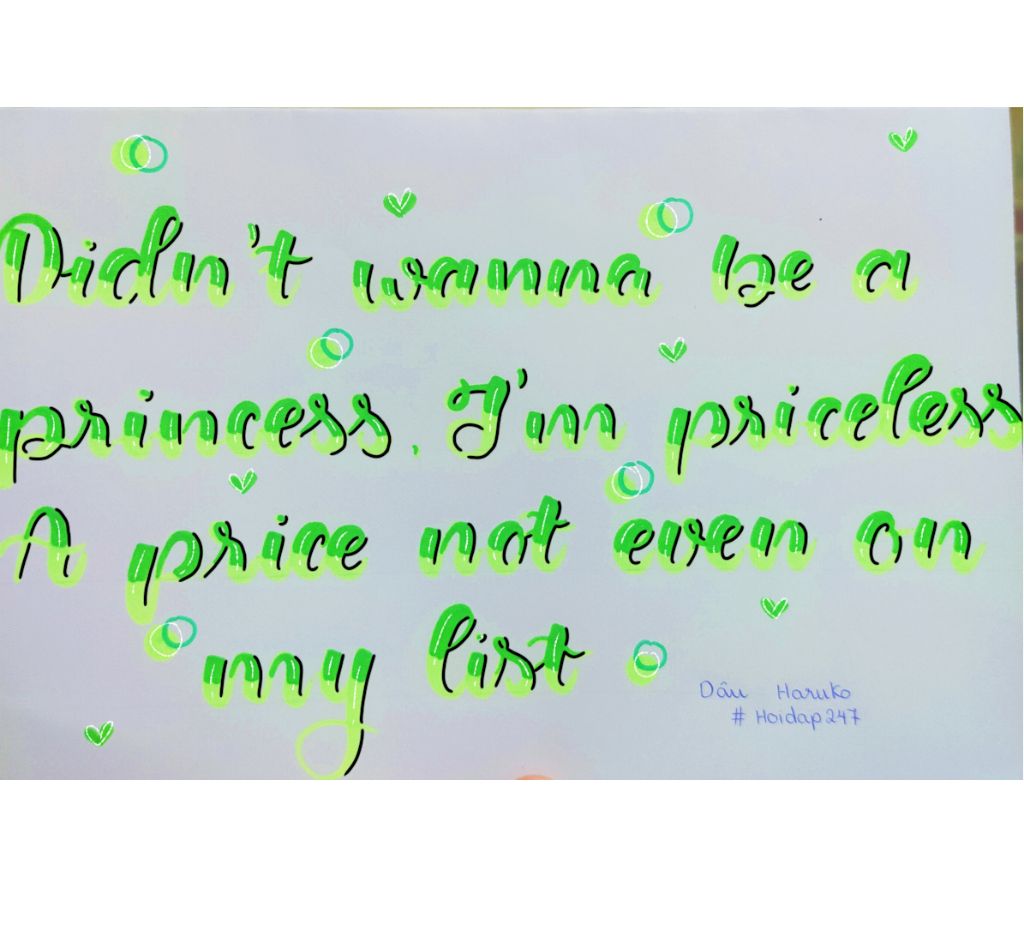 Didn't wanna be a
princess. I'm priceless
A price not even on
my list
Dâu Haruko
#Hoidap247